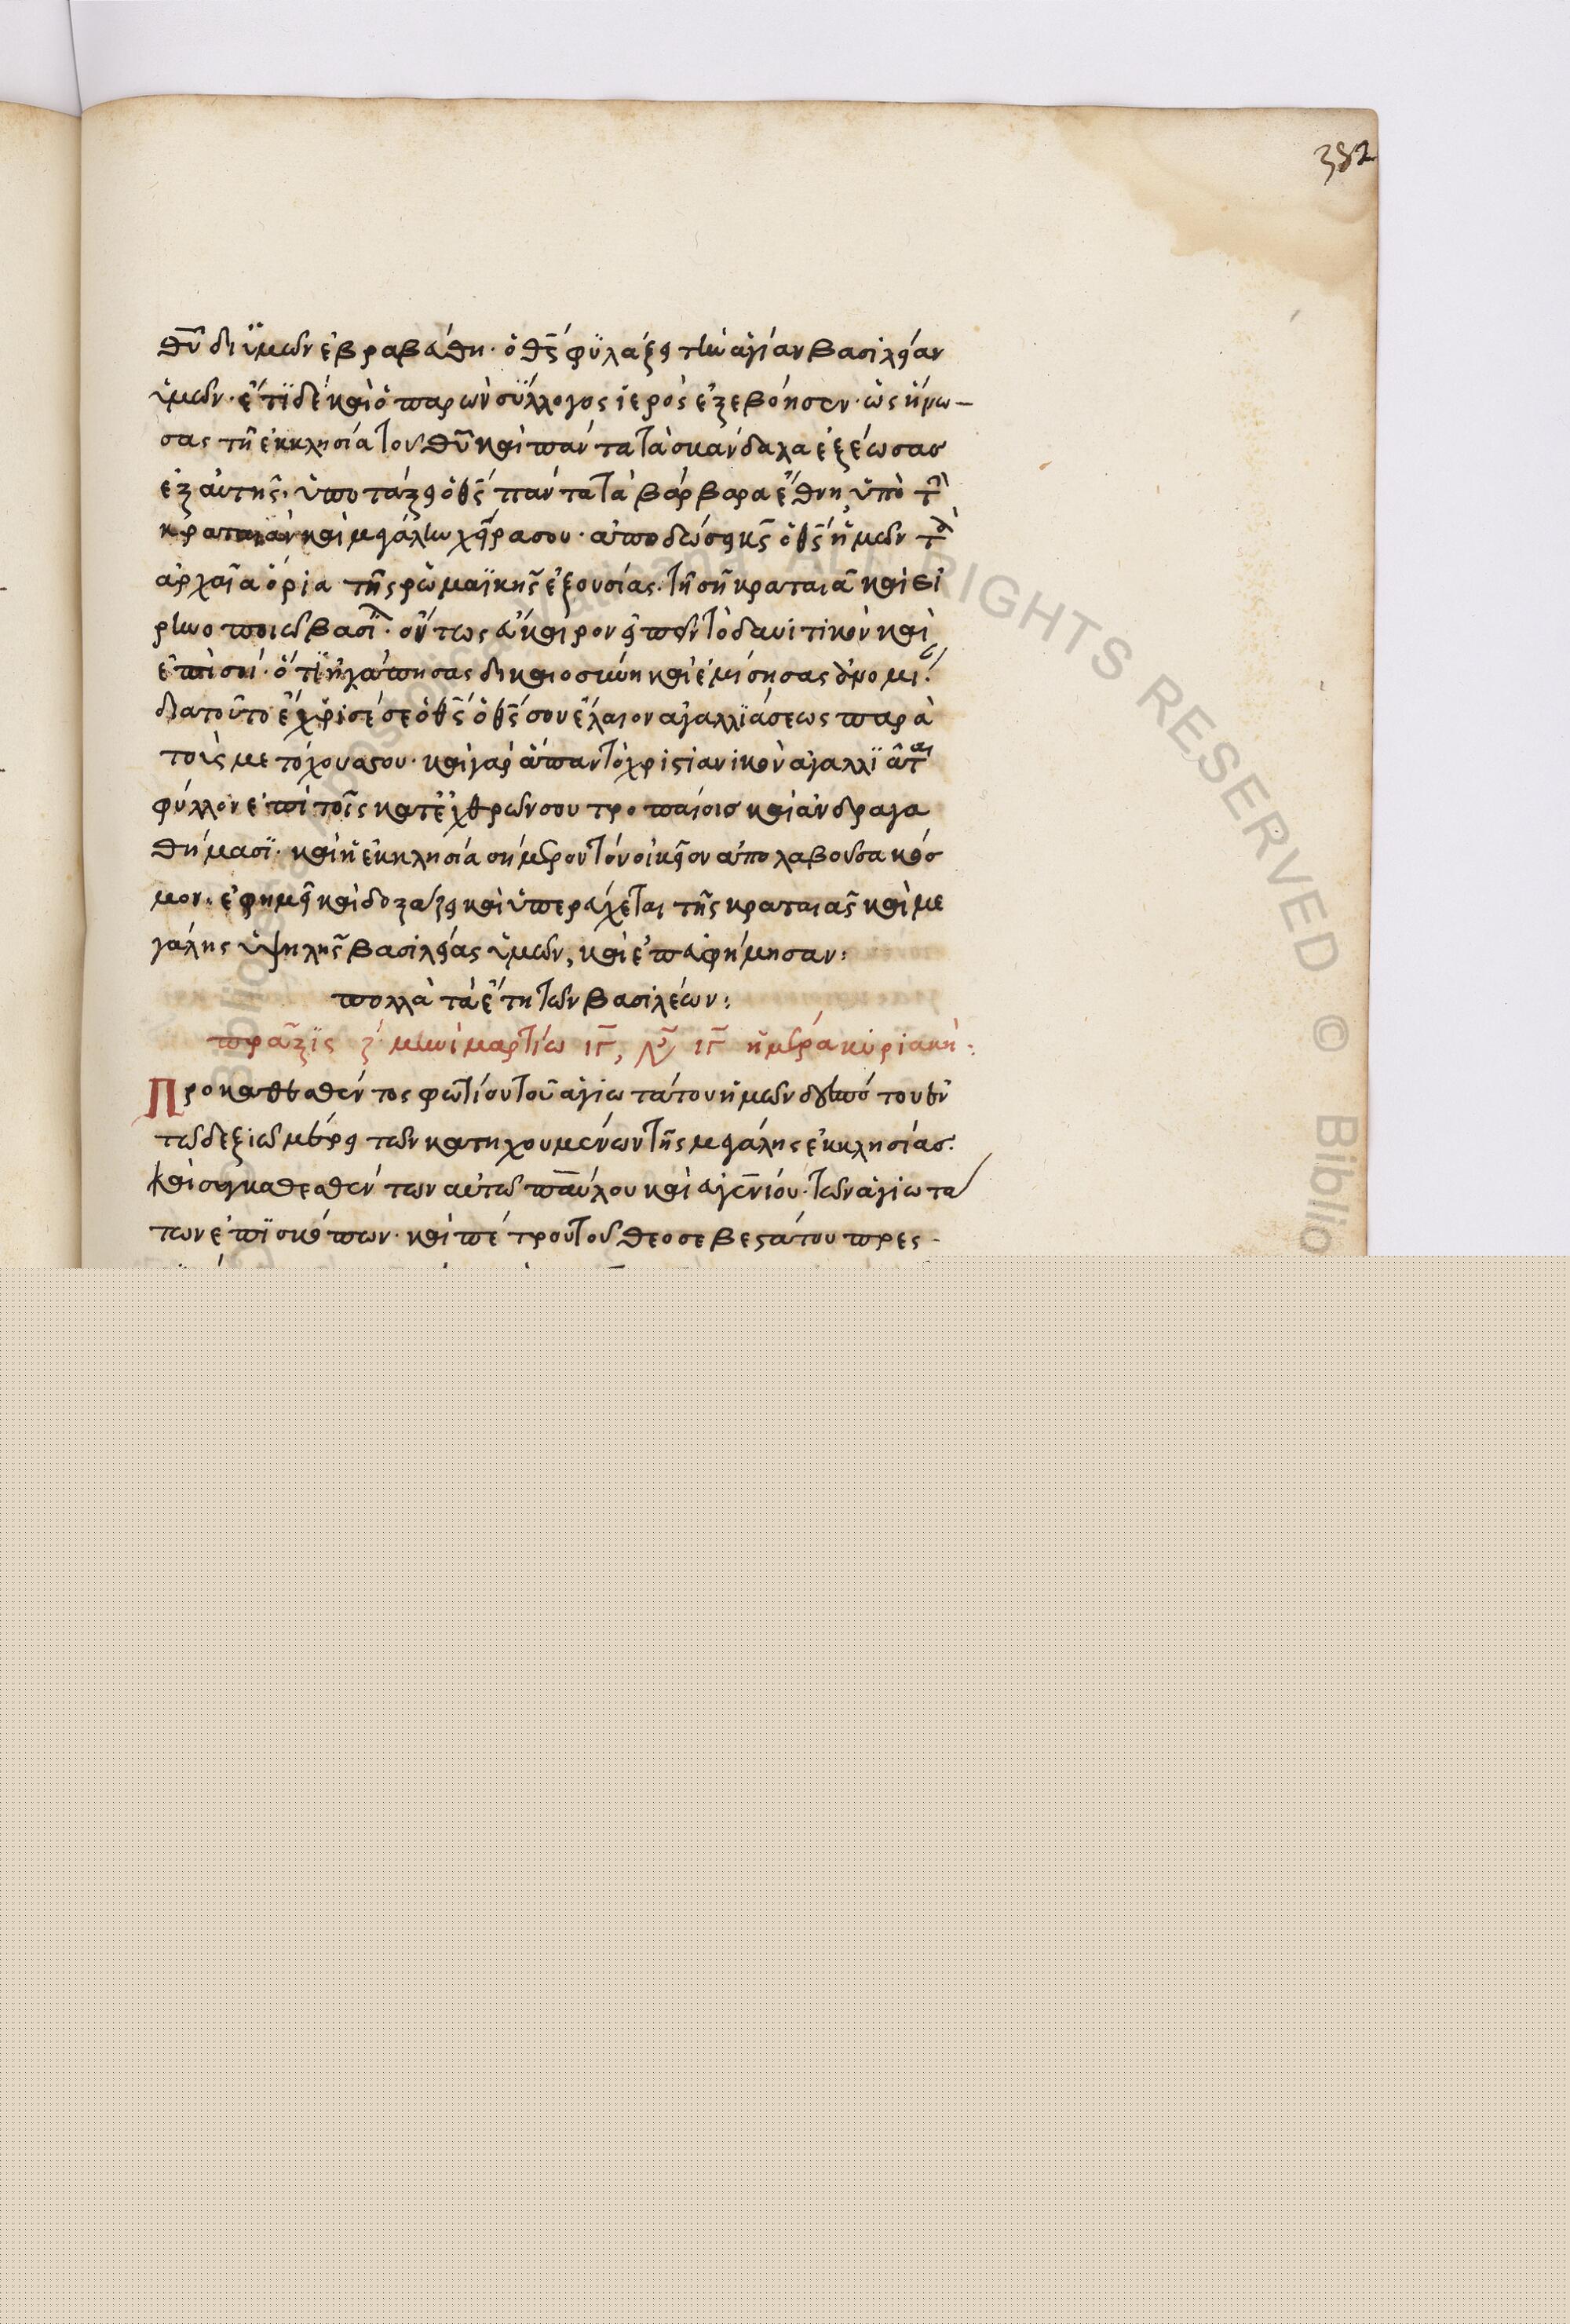 382
θῡ δι ϋμῶν ἐβραβεύθη· ὁ θς̄ φϋλάξει τὴν ἁγίαν βασιλείαν
ὑμῶν· ἔτϊ δὲ καὶ ὁ παρὼν σΰλλογος ἱερὸς ἐξεβόησεν· ὡς ἥνω–
σας τῆ ἐκκλησία τοῦ θῡ καὶ πάντα τὰ σκάνδαλα ἐξέωσας
ἐξ αὐτῆς· ὑποτάξει ὁ θς̄ πάντα τὰ βάρβαρα ἔθνη, ὑπὸ τ̄
κραταιὰν καὶ μεγάλην χεῖρα σου· ἀποδώσει κς̄ ὁ θς̄ ἡμῶν τ
ἀρχαῖα ὅρια τῆς ρωμαϊκῆς ἐξουσίας· τῆ σῆ κραταιᾶ καὶ εἰ
ρηνοποιῶ βασϊλ· οὕτως εὔκαιρον εἰπεῖν τὸ δαυιτικὸν καὶ
ἐπὶ σοί· ὅτϊ ἠγάπησας δικαιοσύνη καὶ ἐμίσησας ἀνομι·
διατοῦτο ἔχρισέ σε ὁ θς̄ ὁ θς̄ σου ἔλαιον ἀγαλλϊάσεως παρὰ
τοὺς μετόχους σου· καὶ γὰρ ἅπαν τὸ χριστιανικὸν ἀγαλλϊᾶτ
φύλλον ἐπὶ τοῖς κατ ἐχθρῶν σου τροπαίοις καὶ ἀνδραγα
θήμασϊ· καὶ ἡ ἐκκλησία σήμερον τὸν οἰκεῖον ἀπολαβοῦσα κόσ
μον· εὐφημεῖ καὶ δοξάζει καὶ ὑπερεύχεται τῆς κραταιᾶς καὶ με
γάλης ὑψηλῆς βασιλείας ὑμῶν, καὶ ἐπευφήμησαν:
πολλὰ τὰ ἔτη τῶν βασιλέων:
πρᾶξϊς ζ μηνὶ μαρτίω ιγ̄, ιγ̄ ἡμέρα κυριακὴ:
Προκαθεσθέντος φωτίου τοῦ ἁγιωτάτου ἡμῶν δεσπότου ἐν
τῶ δεξιῶ μέρει τῶν κατηχουμένων τῆς μεγάλης ἐκκλησίας·
καὶ συγκαθεσθέντων αὐτῶ παύλου καὶ εὐγενίου· τῶν ἁγιωτά
των ἐπϊσκόπων· καὶ πέτρου τοῦ θεοσεβεστάτου πρεσ